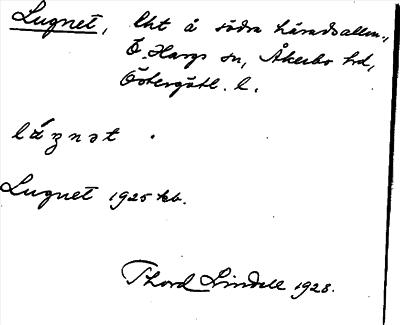 Lugnet, lht å södra häradsallm.,
Ö. Hargs sn, Åkerbo hd,
Östergötl. l.
láznət .
Lugnet 1925 kb.
Thord Lindell 1928.